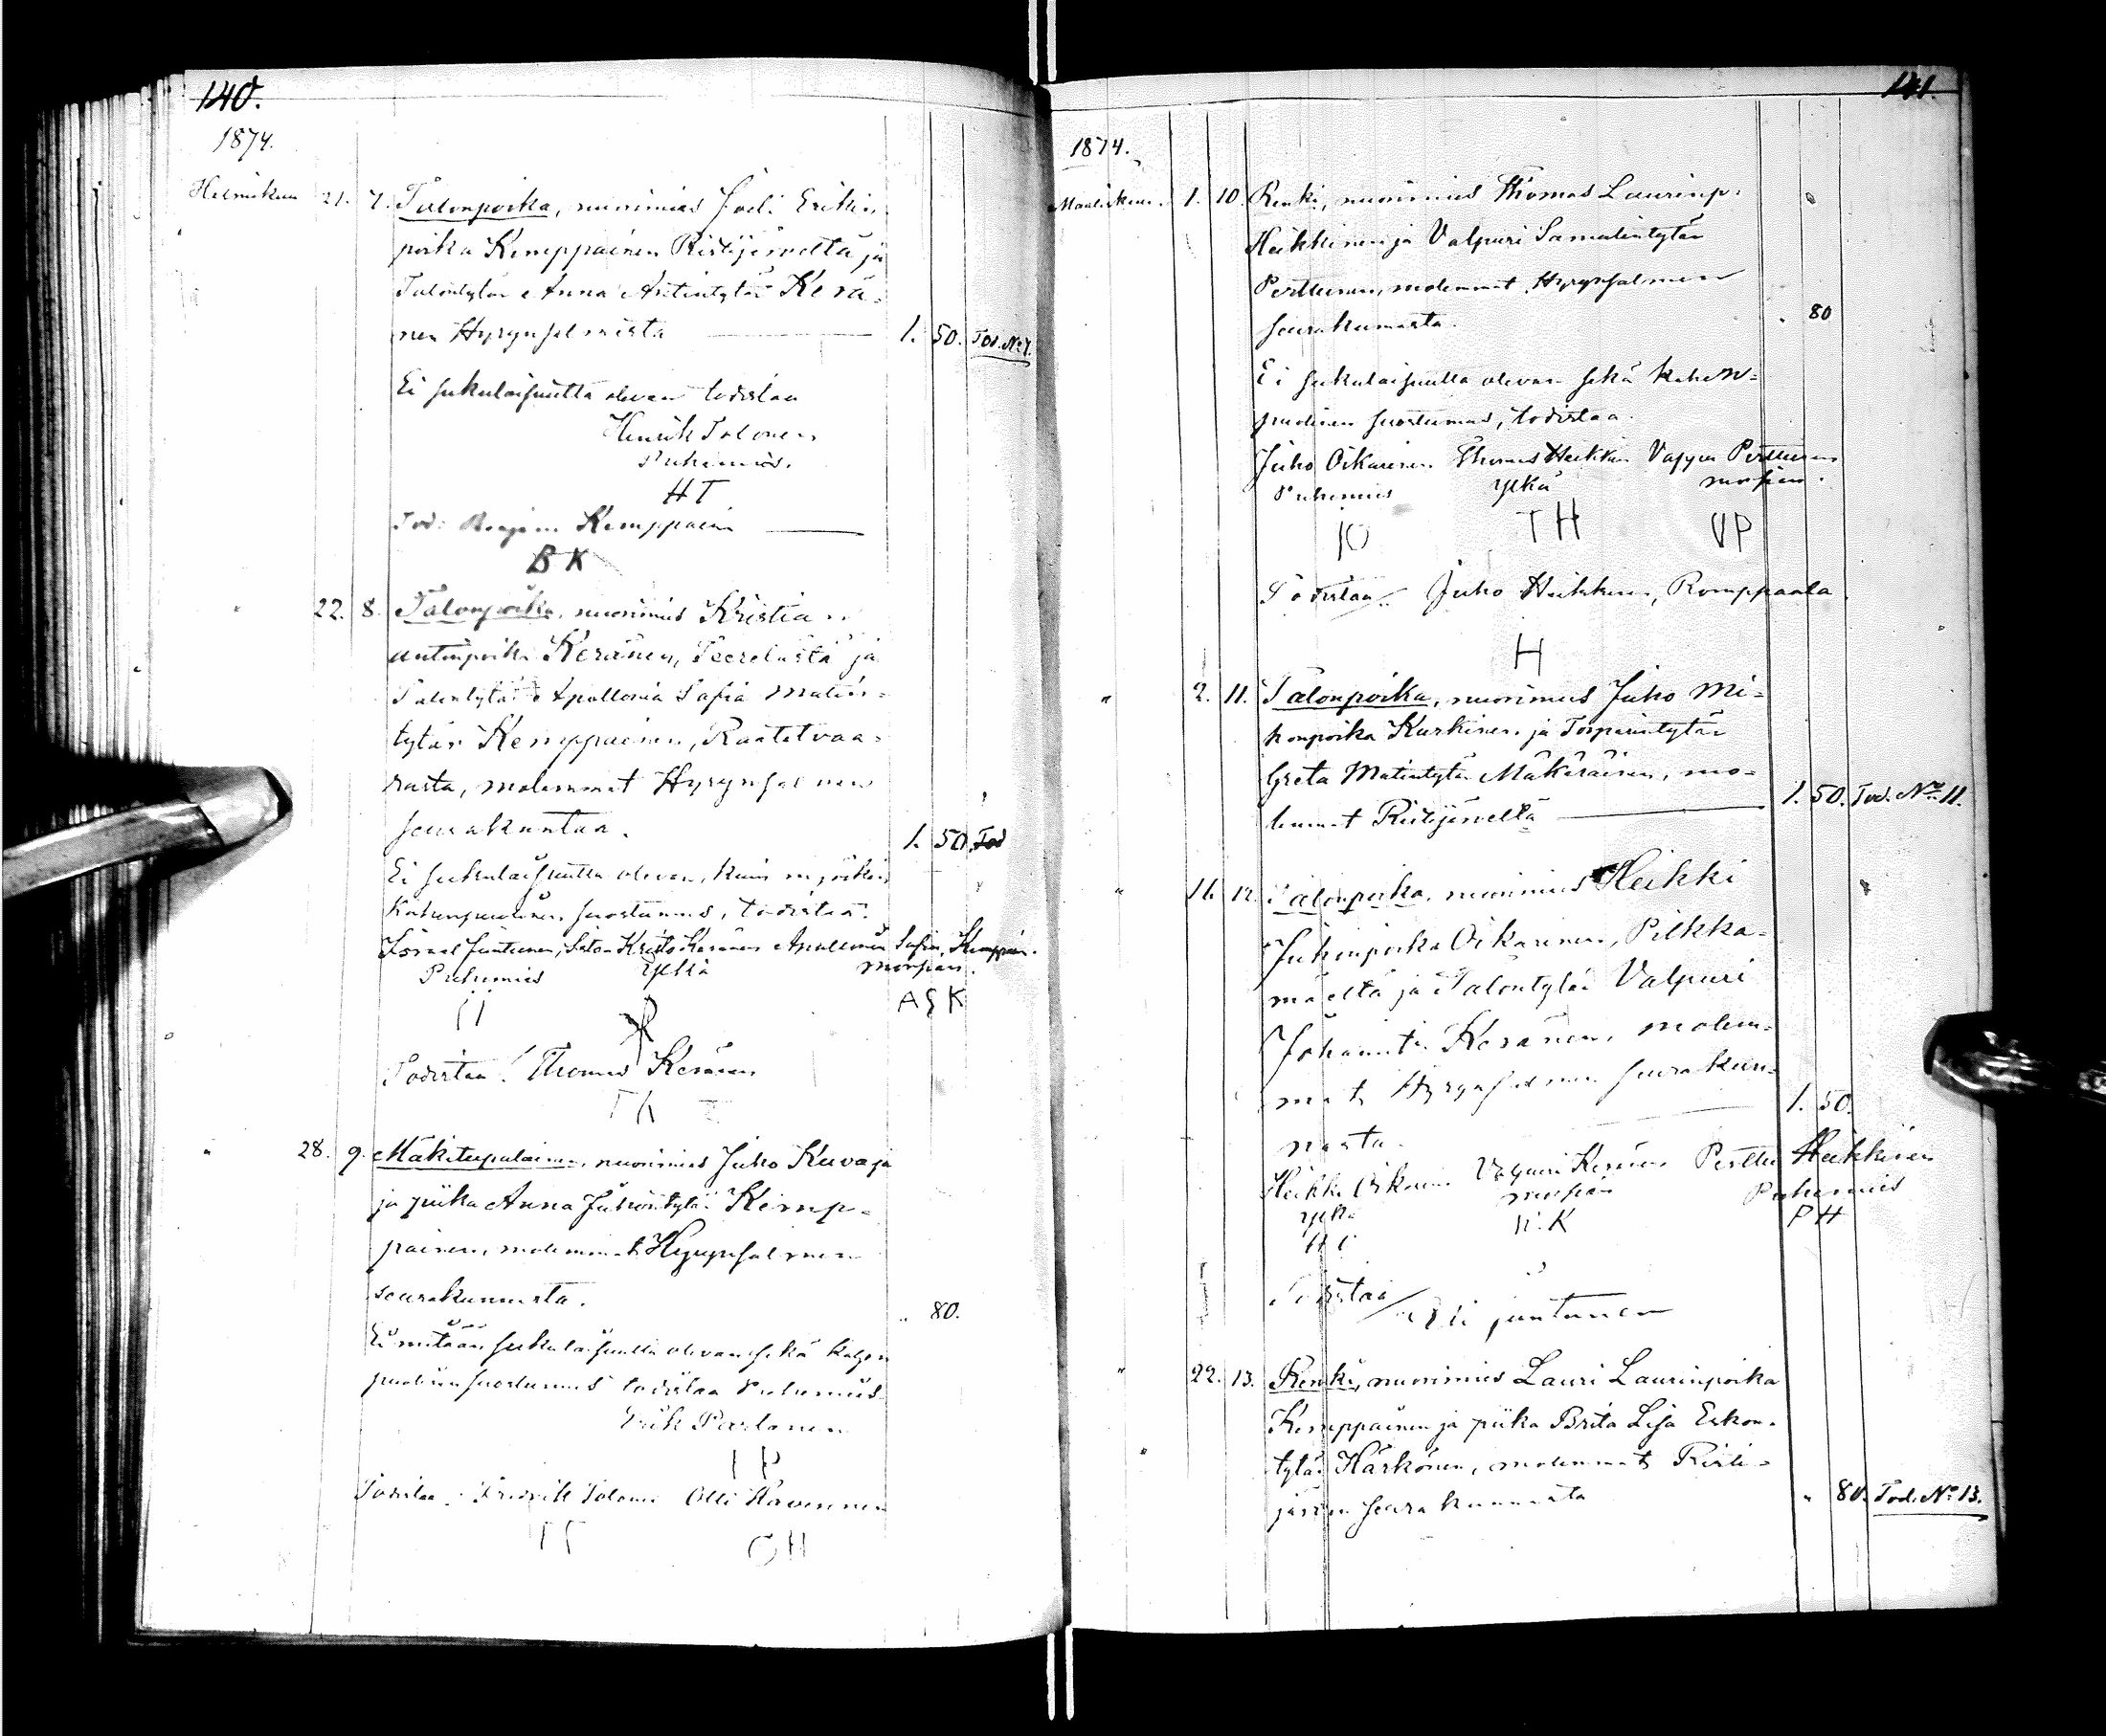 140.
1874.
Helmikuu 21. 7. Talonpoika, nuorimies Joel Erikin
poika Kemppainen Ristijärveltä ja
Talontytär Anna Antintytär Kerä-
nen Hyrynsalmista 1. 50. Tod. No 7.
Ei sukulaisuutta olevan todistaa
Henrik Tolonen
Puhemies.
HT
Tod: Benjam. Kemppain
BK
" 22. 8. Talonpoika, nuorimies Kristia
antinpoika Keränen, ja
Talontytär Apollonia Sofia Matin-
tytär Kemppainen, Raatetvaa-
rasta, molemmat Hyrynsalmen
seurakuntaa. 1. 50. Tod
Ei sukulaisuutta olevan, kuin myöskin
Kahenpuolinen suostumus, todistaa.
Israel Juntunen, Kristo Keränen Apollonia Sofia Kemppain.
Puhemies Ylkä morsian.
IJ ASK
Todistaa: Thomas Keränen
TK
" 28. 9. Mäkitupalainen, nuorimies Juho Kuvaja
ja piika Anna Juhontytär Kemp-
painen, molemmat Hyrynsalmen
seurakunnasta. " 80.
Ei mitään sukulaisuutta olevan sekä kahen
puolinen suostumus todistaa Puhemies
Erik Partanen
IP
Todistaa: Fredrik Tolonen Olli
OH
141.
1874.
Maaliskuu. 1. 10. Renki, nuorimies Thomas Laurinp.
Heikkinen ja Valpuri Samulintytär
Perttunen, molemmat Hyrynsalmen
seurakunnasta. " 80
Ei sukulaisuutta olevan sekä kahen-
puolinen suostumus, todistaa.
Juho Oikarinen Thomas Heikkin Perttunen
Puhemies Ylkä morsian.
JO TH VP
Todistaa: Juho Heikkinen, Romppaala
H
" 2. 11. Talonpoika, nuorimies Juho Mi-
konpoika Kurkinen ja Torpparintytär
Greta Matintytär Mäkäräinen, mo-
lemmat Ristijärveltä 1. 50. Tod. No 11.
" 16. 12. Talonpoika, nuorimies Heikki
Juhonpoika Oikarinen, Pilkka-
mäeltä ja Talontytär Valpuri
Juhont. Keränen, molem-
mat Hyrynsalmen seurakun- 1. 50.
nasta.
Heikki Oikarin Valpuri Keränen Perttu Heikkinen
Ylkä morsian Puhemies
HO V.K PH
Todistaa juntunen
" 22. 13. Renki, nuorimies Lauri Laurinpoika
Kemppainen ja piika Brita Lisa Eskon-
" tytär Härkönen, molemmat Risti-
järven seurakunnasta " 80. Tod. No 13.